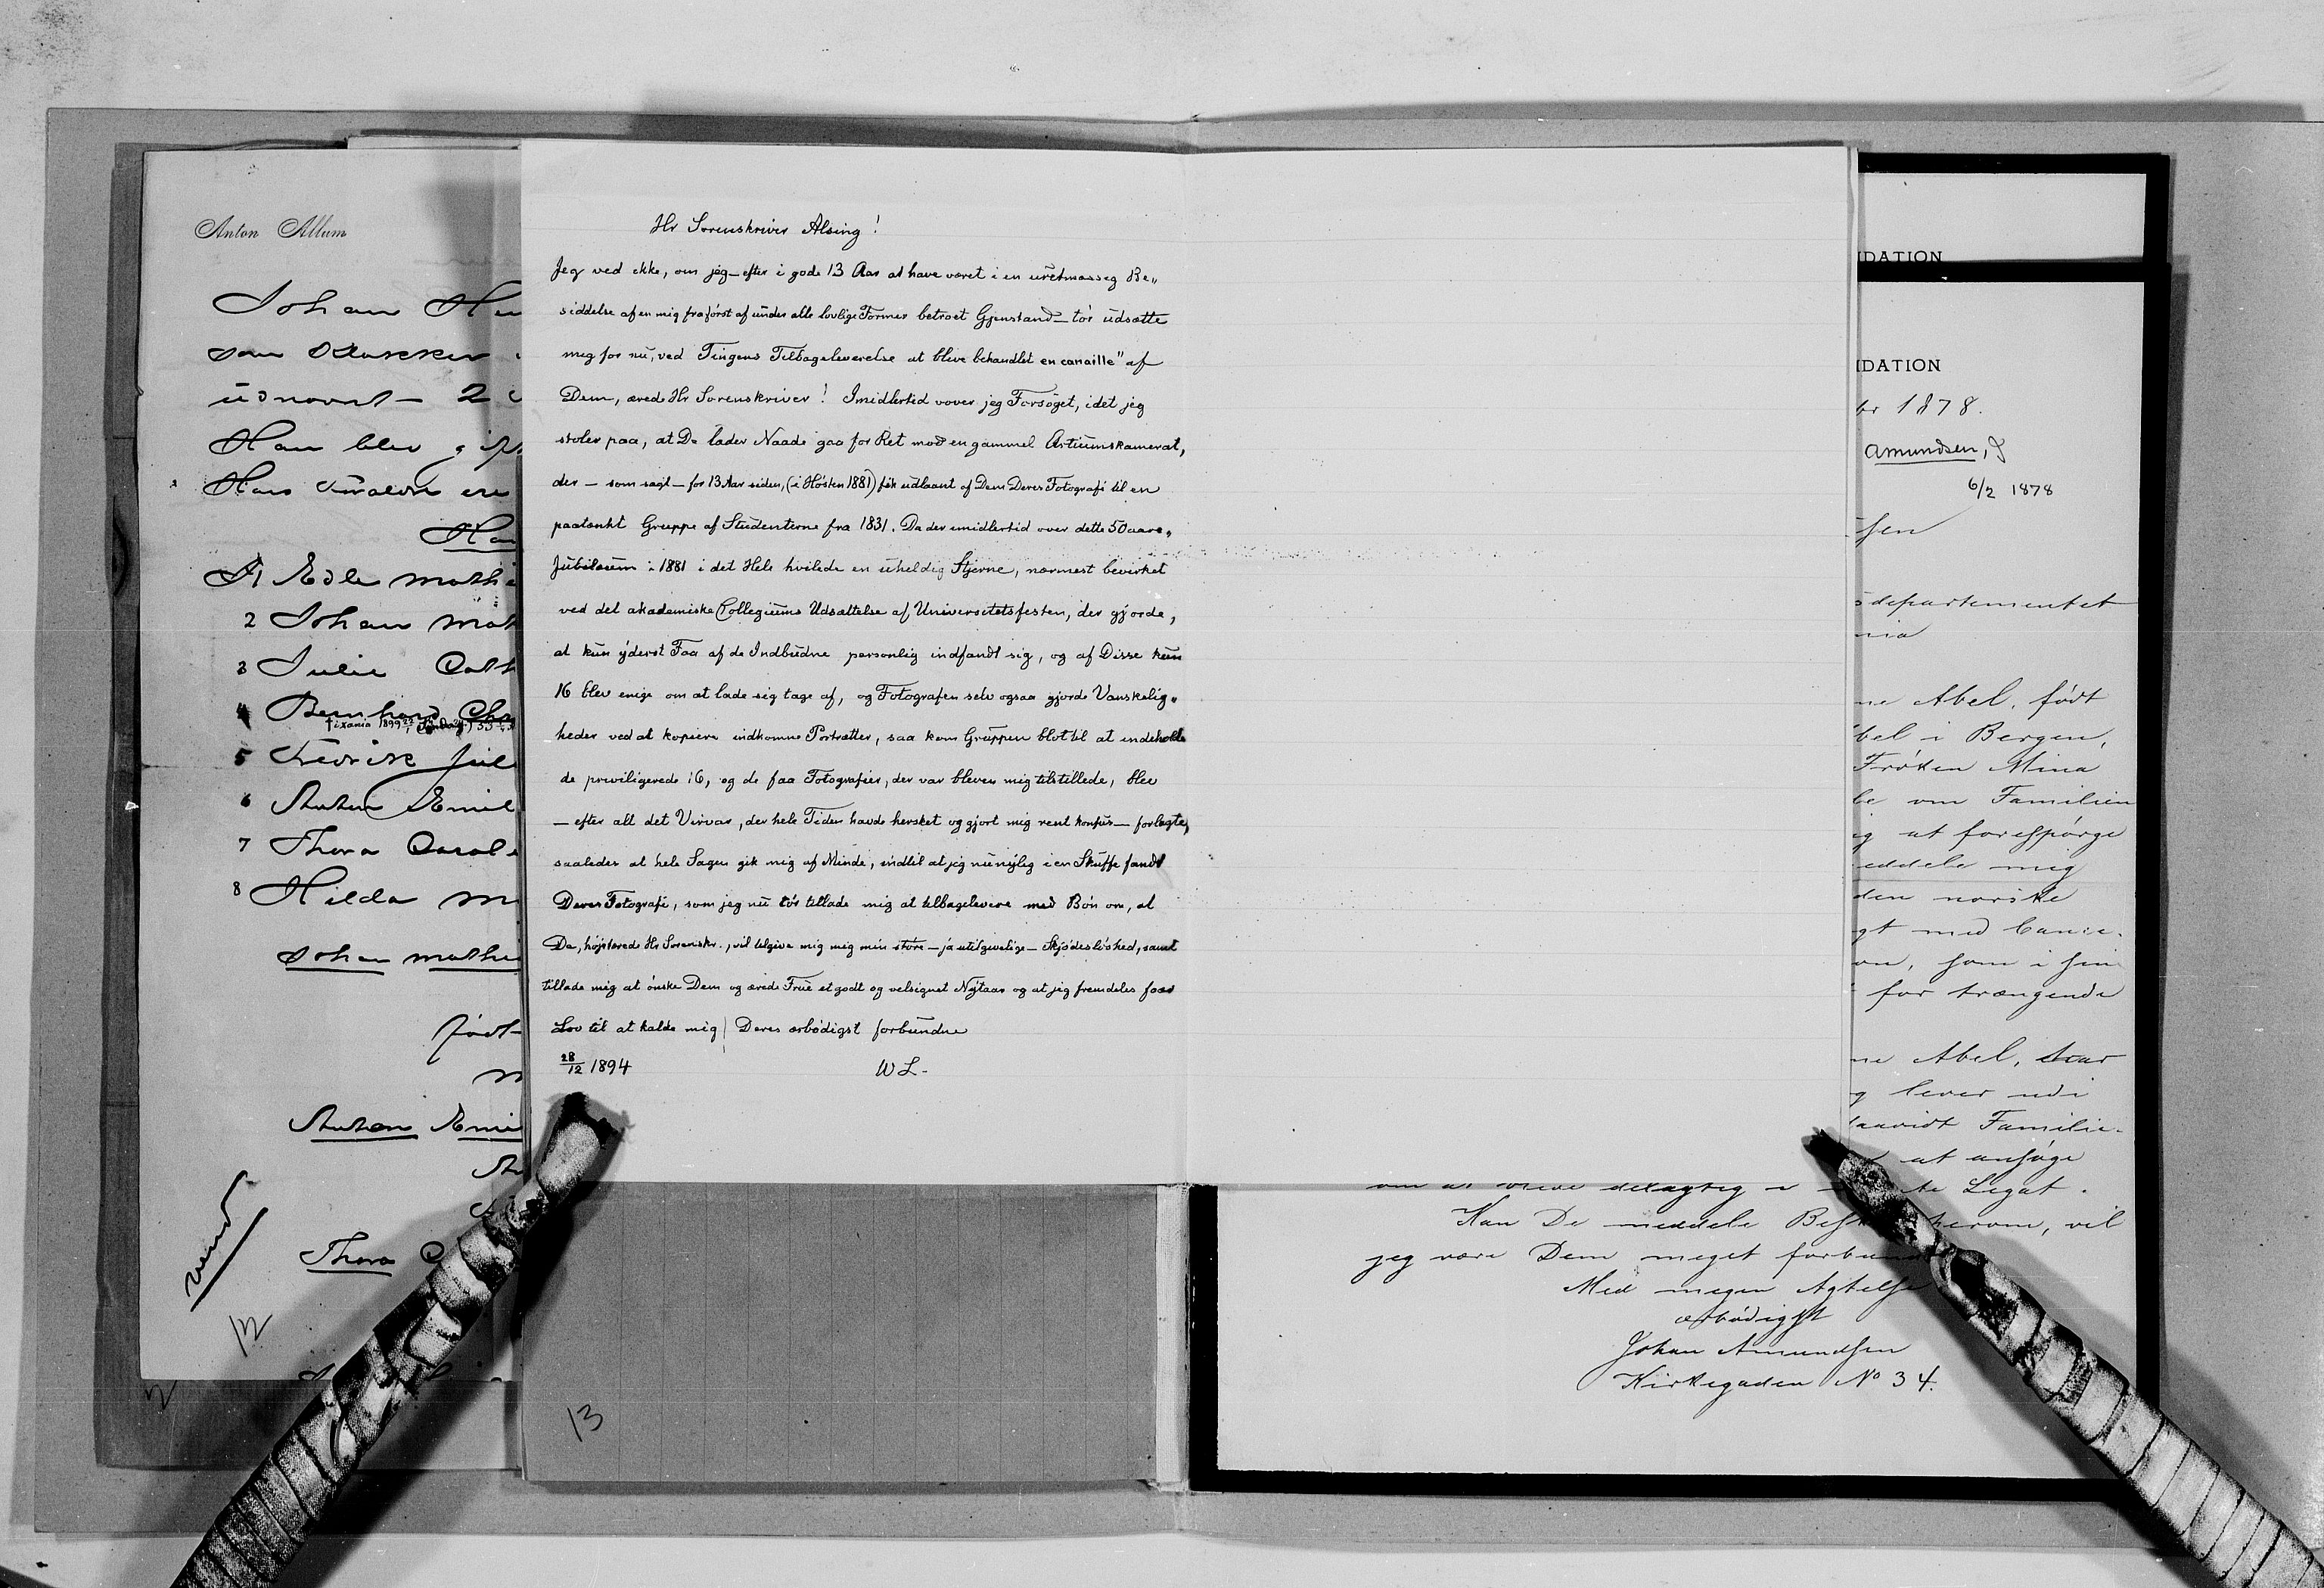 Anton Allum
Johan
som Klokker
udnævnt - 2
Han blev gift
Hans Foræld ere
1 Edle Mathi
2 Johan Mat
3 Julie Cath
4 Bernhard Chr
5 Fredrik Jul
6 Anton Emil
7 Thora Carol
8 Hilda M
Johan Mathi
født
Anton Emi
Thora C
vend
12
Hr Sorenskriver Alsing!
Jeg ved ikke, om jeg - efter i gode 13 Aar at have været i en uretmæssig Be„
siddelse af en mig fra først af under alle lovlige Former betroet Gjenstand - tör udsætte
mig for nu, ved Tingens Tilbageleverelse at blive behandlet en canaille" af
Dem, ærede Hr Sorenskriver! Imidlertid vover jeg Forsöget, idet jeg
stoler paa, at De lader Naade gaa for Ret mod en gammel Artiumskamerat,
der - som sagt - for 13 Aar siden, (i Hösten 1881) fik udlaant af Dem Deres Fotografi til en
paatænkt Gruppe af Studenterne fra 1831. Da der imidlertid over dette 50 aars„
Jubilæum i 1881 i det Hele hvilede en uheldig Stjerne, nærmest bevirket
ved det akademiske Collegiums Udsættelse af Universitetsfesten, der gjorde,
at kun yderst Faa af de Indbudne personlig indfandt sig, og af Disse kun
16 blev enige om at lade sig tage af, og Fotografen selv ogsaa gjorde Vanskelig„
heder ved at kopiere indkomne Portrætter, saa kom Gruppen blot til at indeholde
de priviligerede 16, og de faa Fotografier, der var bleven mig tilstillede, blev
- efter alt det Virvar, der hele Tiden havde hersket og gjort mig rent konfus - forlagte,
saaledes at hele Sagen gik mig af Minde, indtil at jeg nu nylig i en Skuffe fandt
Deres Fotografi, som jeg nu tör tillade mig at tilbagelevere med Bön om, at
De, höjstærede Hr Sorenskr., vil tilgive mig mig min störe - ja utilgivelige - Skjödeslöshed, samt
tillade mig at önske Dem og ærede Frue et godt og velsignet Nytaar og at jeg fremdeles faar
Lov til at kalde mig / Deres ærbödigst forbundne
28/12 1894 W L.
13
IDATION
IDATION
br 1878.
Amundsen, J
6/2 1878
sen
sdepartementet
nia
ne Abel, født
bel i Bergen,
Frøken Mina
be om Familien
ig at forespørge
eddele mig
den norske
gt med Cancel
on, som i sin
for trængende
ne Abel, har
g lever udi
saavidt Familie-
at ansøge
om at blive delagtig i te Legat.
Kan De meddele herom, vil
jeg være Dem meget forbund
Med megen Agtelse
ærbødigst
Johan Amundsen
Kirkegaden No 34.